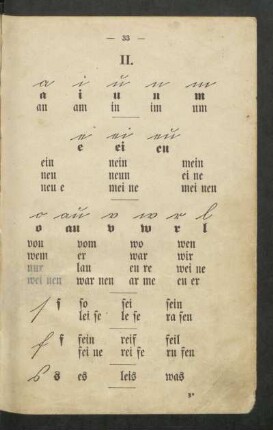 — 33 —
II.
a i ŭ n m
a i u n m
an am in im um
e ei eŭ
e ei eu
ein nein mein
neu neun ei ne
neu e mei ne mei nen
o aŭ v w r l
o au v w r l
von vom wo wen
wem er war wir
nur lau eu re wei ne
wei nen war nen ar me eu er
ſ ſ ſo ſei ſein
lei ſe le ſe ra ſen
f f fein reif feil
fei ne rei fe ru fen
s s es leis was